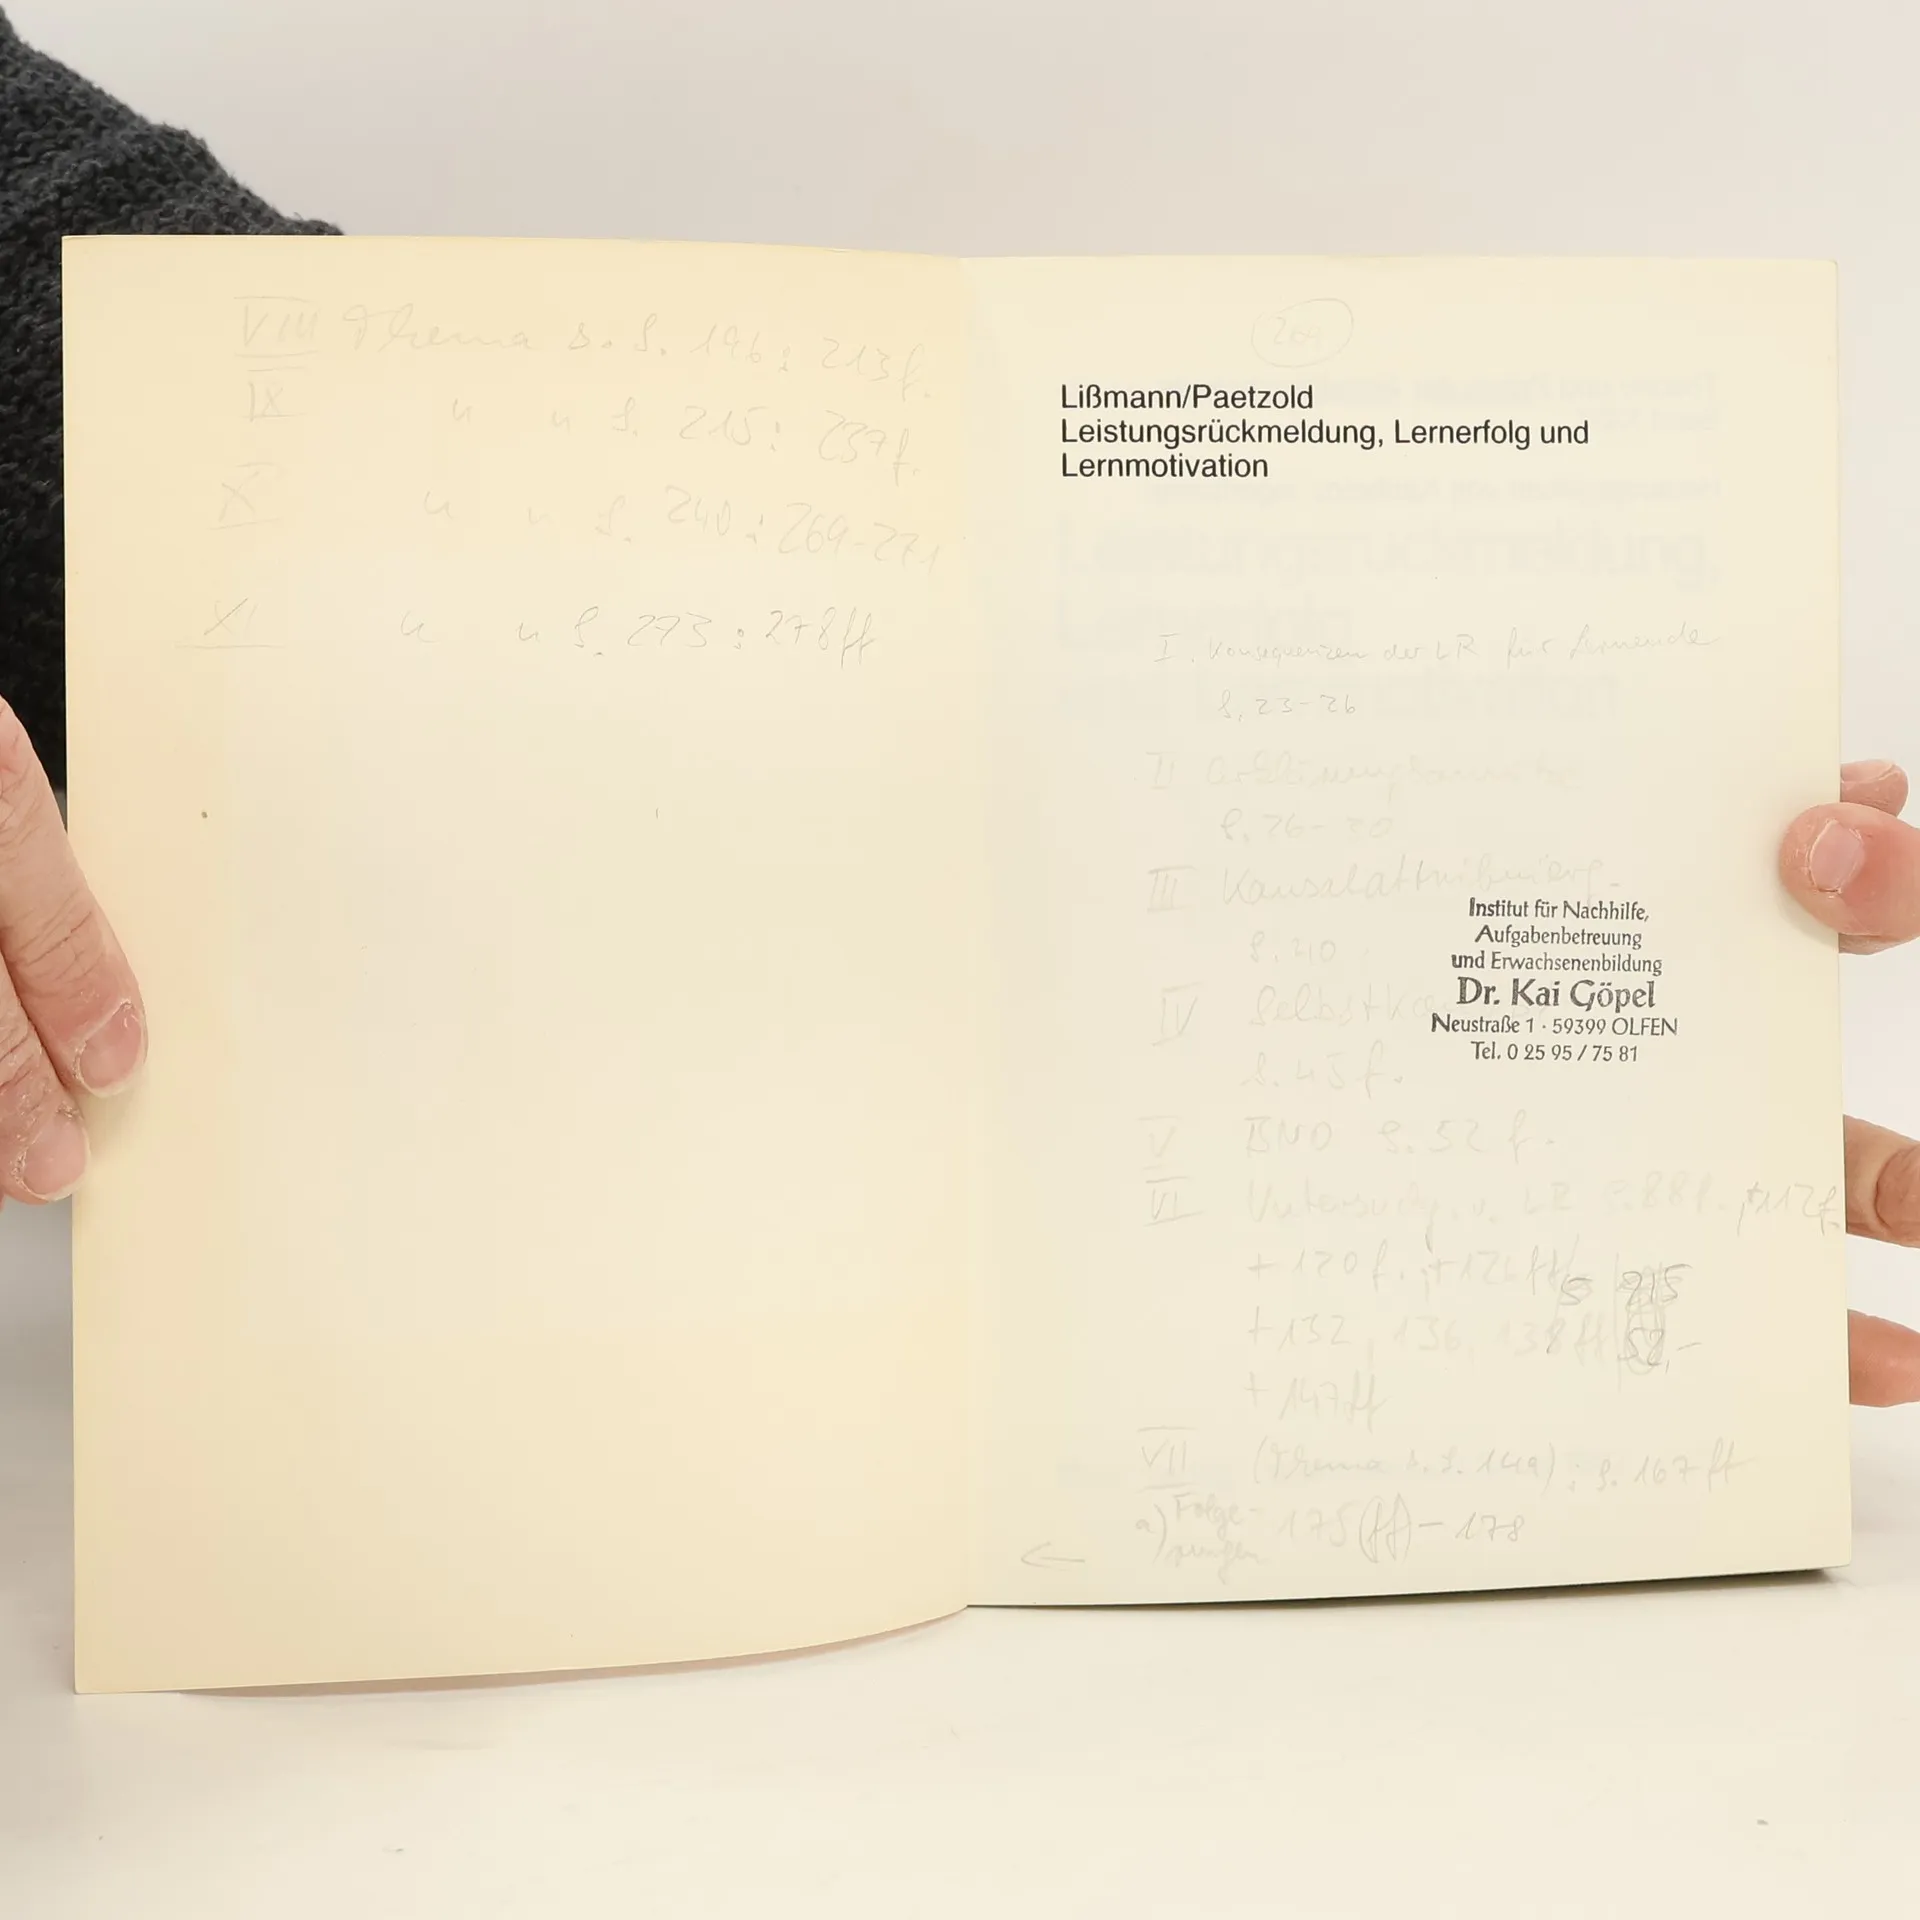 VIII Thema s. S. 196: 213f.
IX " " S. 215: 237f.
X " " S. 240: 269-271
XI " " S. 273: 278ff
Lißmann/Paetzold
Leistungsrückmeldung, Lernerfolg und
Lernmotivation
I. Konsequenzen der LR für Lernende
S. 23-26
II
S. 26-
III Kausalattribuierg.
S. 40
Institut für Nachhilfe,
Aufgabenbetreuung
und Erwachsenenbildung
Dr. Kai Göpel
Neustraße 1 · 59399 OLFEN
Tel. 0 25 95 / 75 81
IV
S. 45f.
V BNO S. 52f.
VI Untersuchg. v. LR S. 88f. + 112f.
+ 120f. + 126ff
S 215
+ 132, 136, 138ff
52,-
+ 147ff
VII (Thema s. S. 149): S. 167ff
a) Folge-
rungen 175(ff) - 178
←